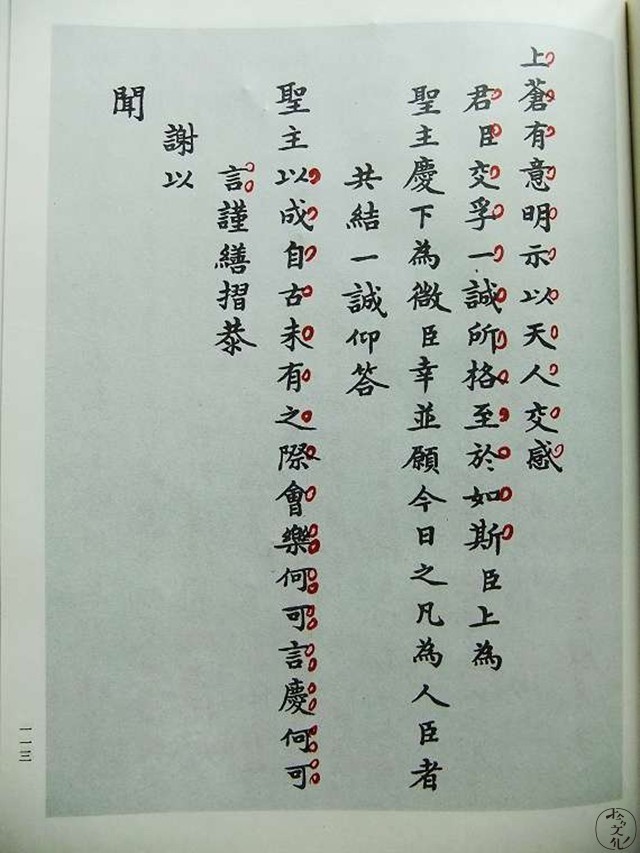 上蒼有意明示以天人交感
君臣交孚一誠所格至於如斯臣上為
聖主慶下為微臣幸並願今日之凡為人臣者
共結一誠仰答
聖主以成自古未有之際會樂何可言慶何可
言謹繕摺恭
謝以
聞
一一三